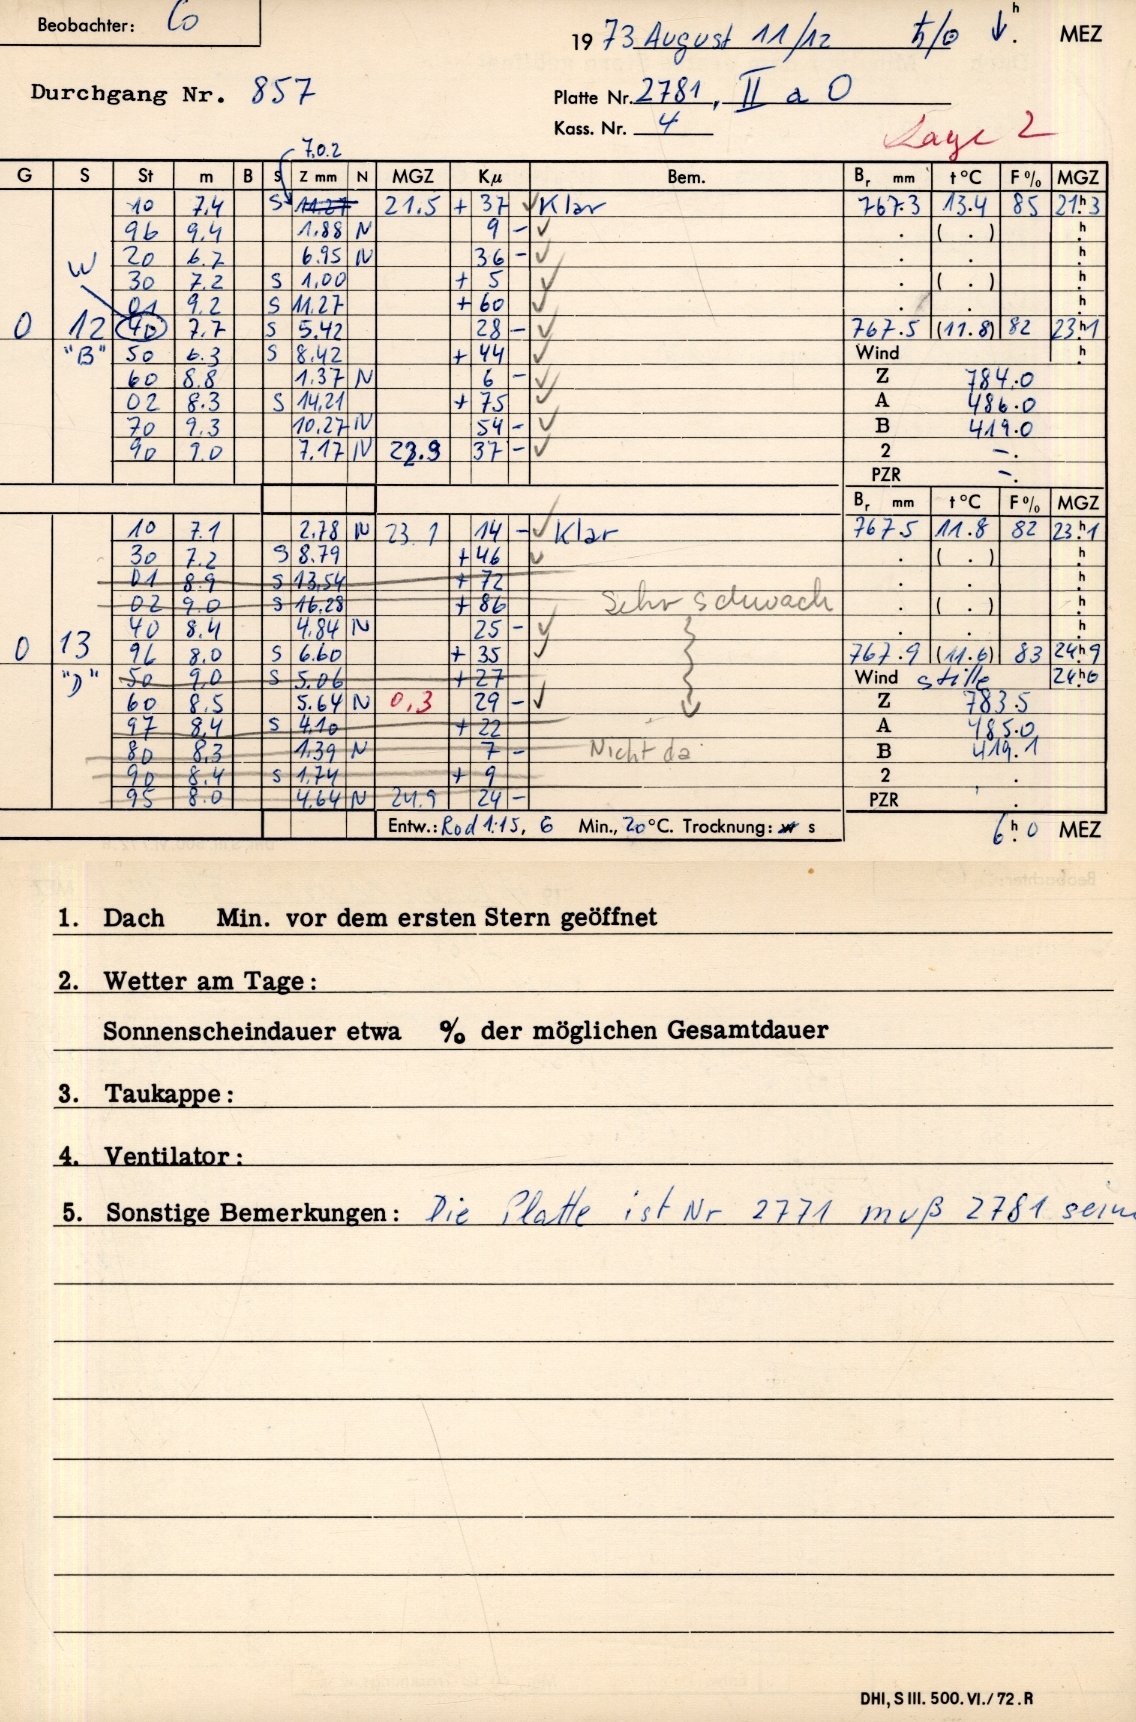 Beobachter: Co
1973 August 11/12 ♄/⊙ ↓ . h MEZ
Durchgang Nr. 857
Platte Nr. 2781, II a O
Kass. Nr. 4
Lage 2
7.0.2
G S St m B S Z mm N MGZ Kμ Bem. Br mm t °C F % MGZ
10 7.4 S 11.27 21.5 + 37 ✓ Klar 767.3 13.4 85 21h.3
96 9.4 1.88 N 9 - ✓ . ( . ) h.
20 6.7 6.95 N 36 - ✓ . . h.
W 30 7.2 S 1,00 + 5 ✓ . ( . ) h.
01 9.2 S 11.27 + 60 ✓ . . h.
0 12 40 7.7 S 5.42 28 - ✓ 767.5 (11.8) 82 23h.1
"B" 50 6.3 S 8.42 + 44 ✓ Wind h
60 8.8 1.37 N 6 - ✓ Z 784.0
02 8.3 S 14,21 + 75 ✓ A 486.0
70 9.3 10,27 N 54 - ✓ B 419.0
90 9.0 7.17 N 22.9 37 - ✓ 2 -.
PZR -.
Br mm t °C F % MGZ
10 7.1 2.78 N 23.1 14 - ✓ Klar 767.5 11.8 82 23h.1
30 7.2 S 8.79 + 46 ✓ . ( . ) h.
01 8.9 S 13,54 + 72 . . h.
02 9.0 S 16.28 + 86 sehr schwach . ( . ) h.
40 8.4 4.84 N 25 - ✓ . . h.
0 13 96 8.0 S 6.60 + 35 ✓ 767.9 (11.6) 83 24h.9
"D" 50 9,0 S 5.06 + 27 Wind stille 24h.0
60 8,5 5.64 N 0,3 29 - ✓ Z 783.5
97 8,4 S 4.10 + 22 A 485.0
80 8,3 1.39 N 7 - Nicht da B 419.1
90 8.4 S 1,74 + 9 2 .
95 8.0 4,64 N 24.9 24 - PZR .
Entw.: Rod 1:15, 6 Min., 20°C. Trocknung: s 6h.0 MEZ
1. Dach Min. vor dem ersten Stern geöffnet
2. Wetter am Tage:
Sonnenscheindauer etwa % der möglichen Gesamtdauer
3. Taukappe:
4. Ventilator:
5. Sonstige Bemerkungen: Die Platte ist Nr 2771 muß 2781 sein
DHI, S III. 500. VI./72. R